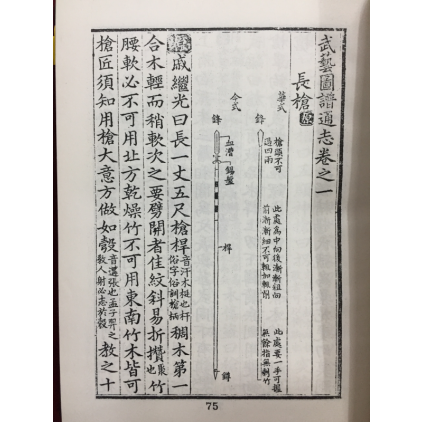 武藝圖譜通志卷之一
長槍
華式
鋒
槍頭不可
過四兩
此處為中向後漸漸粗向
前漸漸細不可輒如輒削
此處要一手可握
無餘指無剩竹
今式
鋒
血漕
錫盤
桿
鐏
戚繼光曰長一丈五尺槍桿音汗木梃也杆俗字俗訓槍柄稠木第一
合木輕而稍軟次之要劈開者佳紋斜易折攢聚也竹
腰軟必不可用北方乾燥竹不可用東南竹木皆可
槍匠須知用槍大意方做如彀音遘張也孟子羿之教人射必志於彀教之十
75